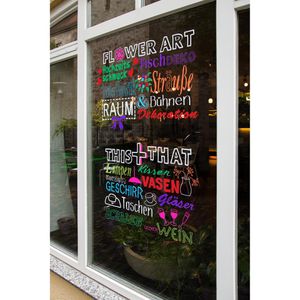 FLOWER ART
HOCHZEITS TISCHDEKO
SCHMUCK
Sträuße
RAUM & Bühnen
Dekoration
THIS + THAT
Lampen Kissen
GESCHIRR VASEN
Taschen Gläser
WEIN